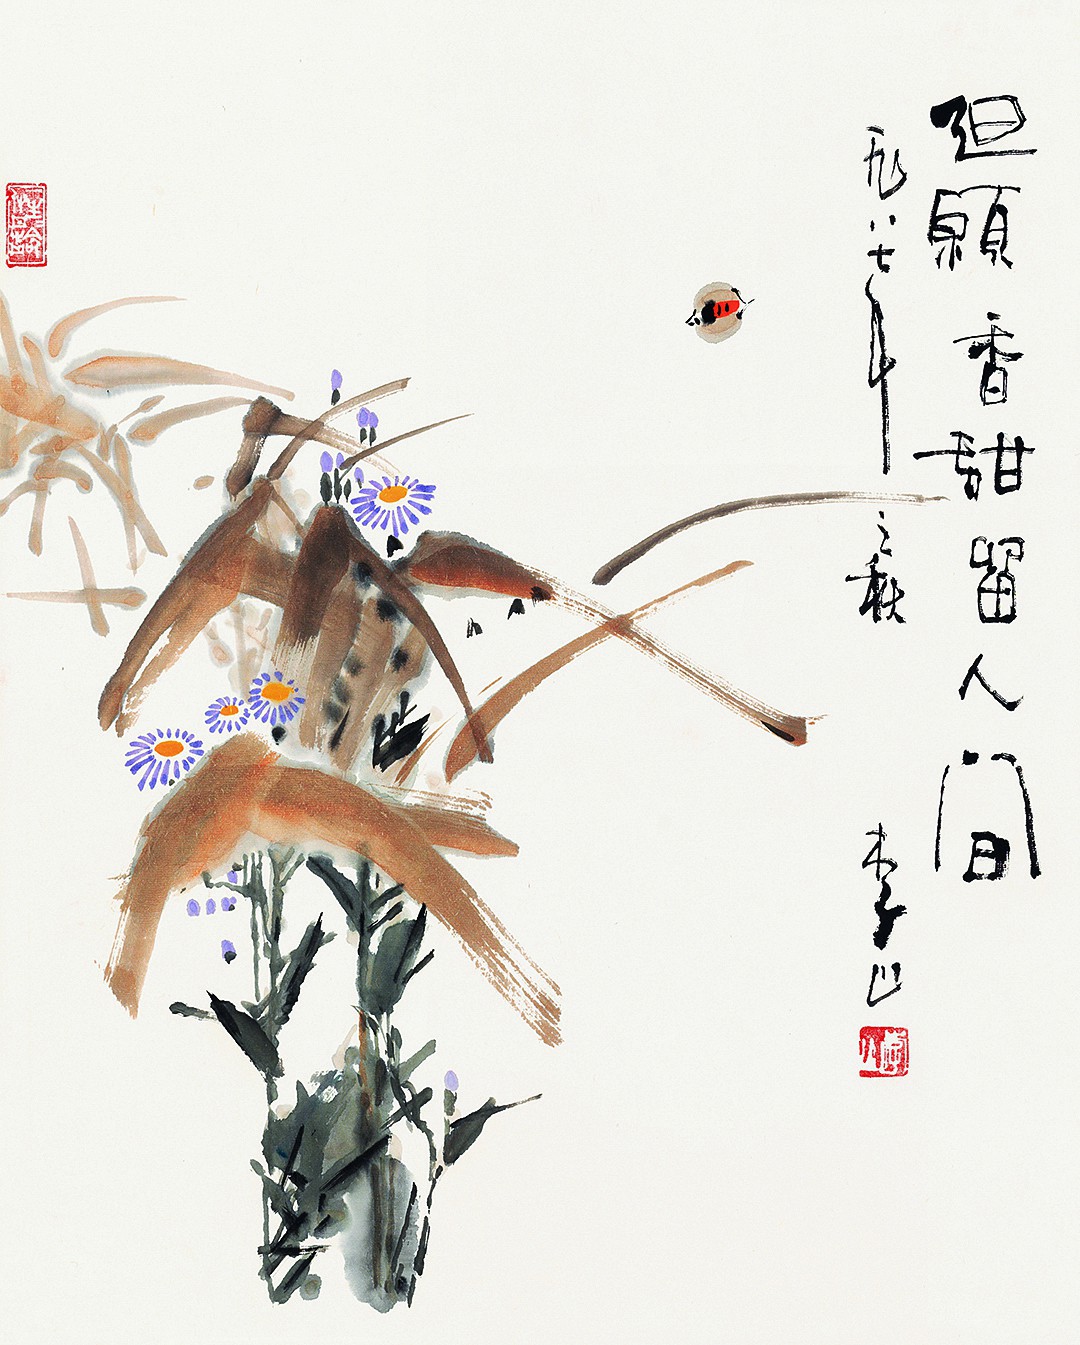 但願香甜留人間
一九八七年之秋 李山